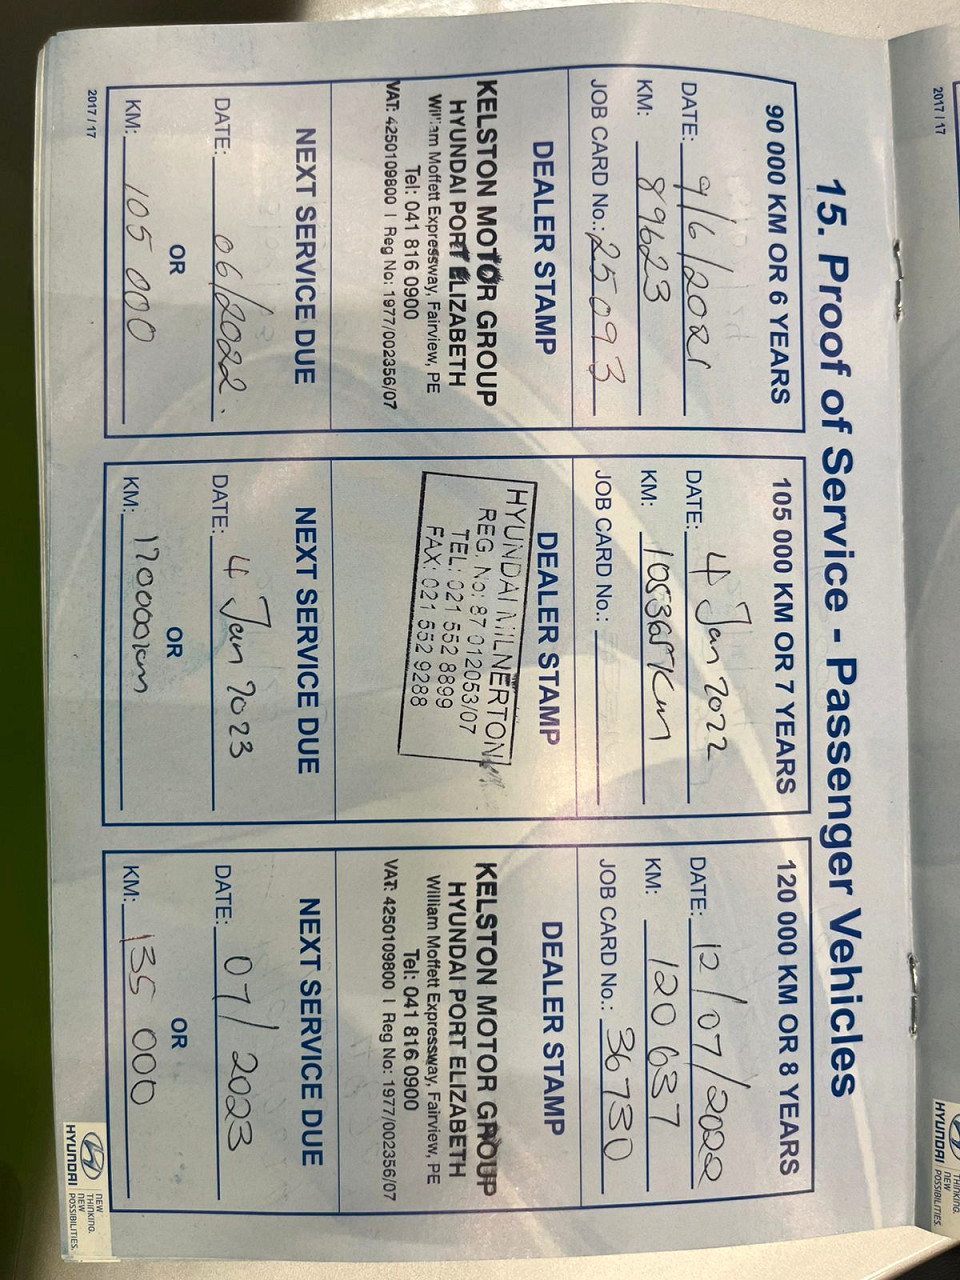 15. Proof of Service - Passenger Vehicles
90 000 KM OR 6 YEARS
DATE: 9/6/2021
KM: 89623
JOB CARD No.: 25093
DEALER STAMP
KELSTON MOTOR GROUP
HYUNDAI PORT ELIZABETH
William Moffett Expressway, Fairview, PE
Tel: 041 816 0900
VAT: 4250109800 | Reg No: 1977/002356/07
NEXT SERVICE DUE
DATE: 06/2022.
OR
KM: 105 000
105 000 KM OR 7 YEARS
DATE: 4 Jan 2022
KM: 105365km
JOB CARD No.:
DEALER STAMP
HYUNDAI MILNERTON
REG. No: 87 012053/07
TEL: 021 552 8899
FAX: 021 552 9288
NEXT SERVICE DUE
DATE: 4 Jan 2023
OR
KM: 170000km
120 000 KM OR 8 YEARS
DATE: 12/07/2022
KM: 120 637
JOB CARD No.: 36730
DEALER STAMP
KELSTON MOTOR GROUP
HYUNDAI PORT ELIZABETH
William Moffett Expressway, Fairview, PE
Tel: 041 816 0900
VAT: 4250109800 | Reg No: 1977/002356/07
NEXT SERVICE DUE
DATE: 07/2023
OR
KM: 135 000
2017 / 17
HYUNDAI
NEW
THINKING.
NEW
POSSIBILITIES.
2017 / 17
HYUNDAI
THINKING.
NEW
POSSIBILITIES.